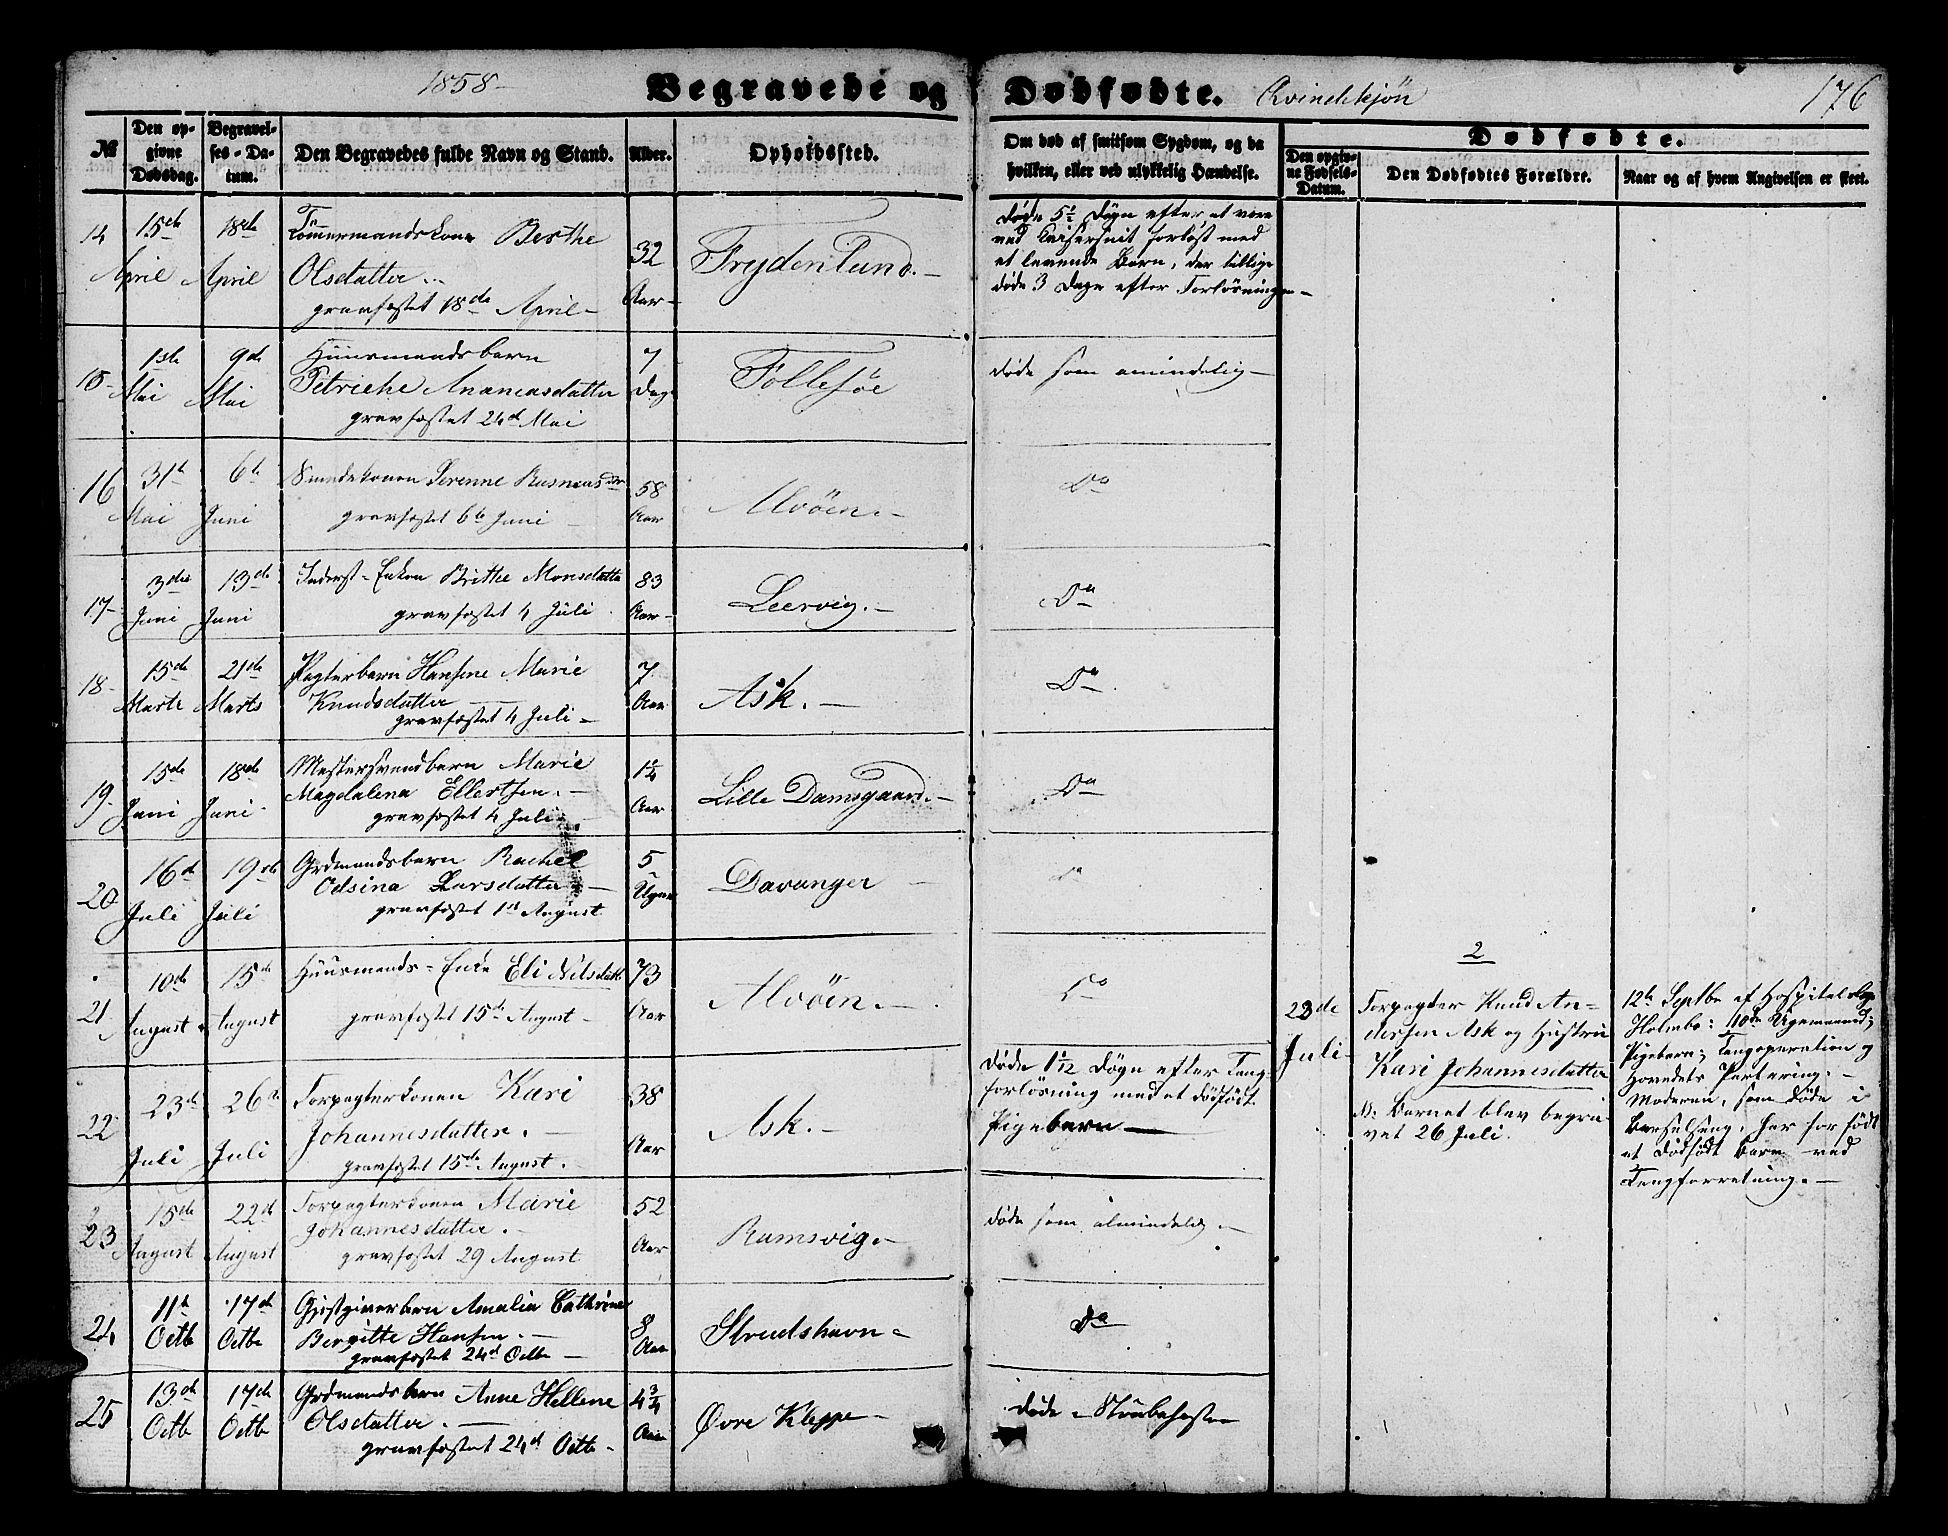 1858 Begravede og Dødfødte. Qvindekjön 176
№
Den opgivne Dødsdag.
Begravelses-Datum.
Den Begravedes fulde Navn og Stand.
Alder.
Opholdssted.
Om død af smitsom Sygdom, og da hvilken, eller ved ulykkelig Hændelse.
Dødfødte.
Den opgivne Fødsels-Datum.
Den Dødfødtes Forældre.
Naar og af hvem Angivelsen er skeet.
14 15de April 18de April
Tömmermandskone Berthe
Olsdatter
gravfæstet 18de April
32 Aar
Frydenlund.
døde 5½ Døgn efter at være
ved Keisersnit forløst med
et levende Barn, der tillige
døde 3 Dage efter Forløsningen
15 1ste Mai 9de Mai
Huusmandsbarn
Petriche Ananiasdatter
gravfæstet 24de Mai
7 Dage
Follesøe
døde som almindelig
16 31te Mai 6te Juni
Smedekonen Serenne Rasmusdtr
gravfæstet 6te Juni
58 Aar
Alvöen.
Do
17 3die Juni 13de Juni
Inderst-Enken Brithe Monsdatter
gravfæstet 4 Juli
83 Aar
Leervig.
Do
18 15de Marts 21de Marts
Pagterbarn Hansine Marie
Knudsdatter
gravfæstet 4 Juli
7 Aar
Ask.
Do
19 15de Juni 18de Juni
Mestersvendbarn Marie
Magdalena Ellertsen.
gravfæstet 4 Juli
1¼ Aar
Lille Damsgaard.
Do
20 16de Juli 19de Juli
Grdmandsbarn Rachel
Odsina Larsdatter
gravfæstet 1st August
5 Uger
Davanger
Do
21 10de August 15de August
Huusmands-Enke Eli Nilsdatter
gravfæstet 15de August
73 Aar
Alvöen.
Do
22 23de Juli 26de Juli
Forpagterkonen Kari
Johannesdatter.
gravfæstet 15de August.
38 Aar
Ask.
døde 1½ Døgn efter Tang-
forløsning med et dødfødt
Pigebarn
2
23de Juli
Forpagter Knud An-
dersen Ask og Hustru
Kari Johannesdatter
Barnet blev begra-
vet 26 Juli.
12te Septbr af Hospitalslæge
Holmbo: 10de Ugemaaned;
Pigebarn; Tangoperation og
Hovedets Partering.
Moderen, som døde i
Barselseng, har før født
et dødfødt Barn ved
Tangforretning.
23 15de August 22de August
Forpagterkonen Marie
Johannesdatter.
gravfæstet 29 August
52 Aar
Ramsvig.
døde som almindelig.
24 11te Octbr 17de Octbr
Gjestgiverbarn Amalia Cathrine
Bergitte Hansen.
gravfæstet 24de Octbr
8 Aar
Strudshavn
Do
25 13de Octbr 17de Octbr
Grdmandsbarn Anne Hellene
Olsdatter.
gravfæstet 24de Octbr
4¾ Aar
Øvre Kleppe
døde Strubehoste